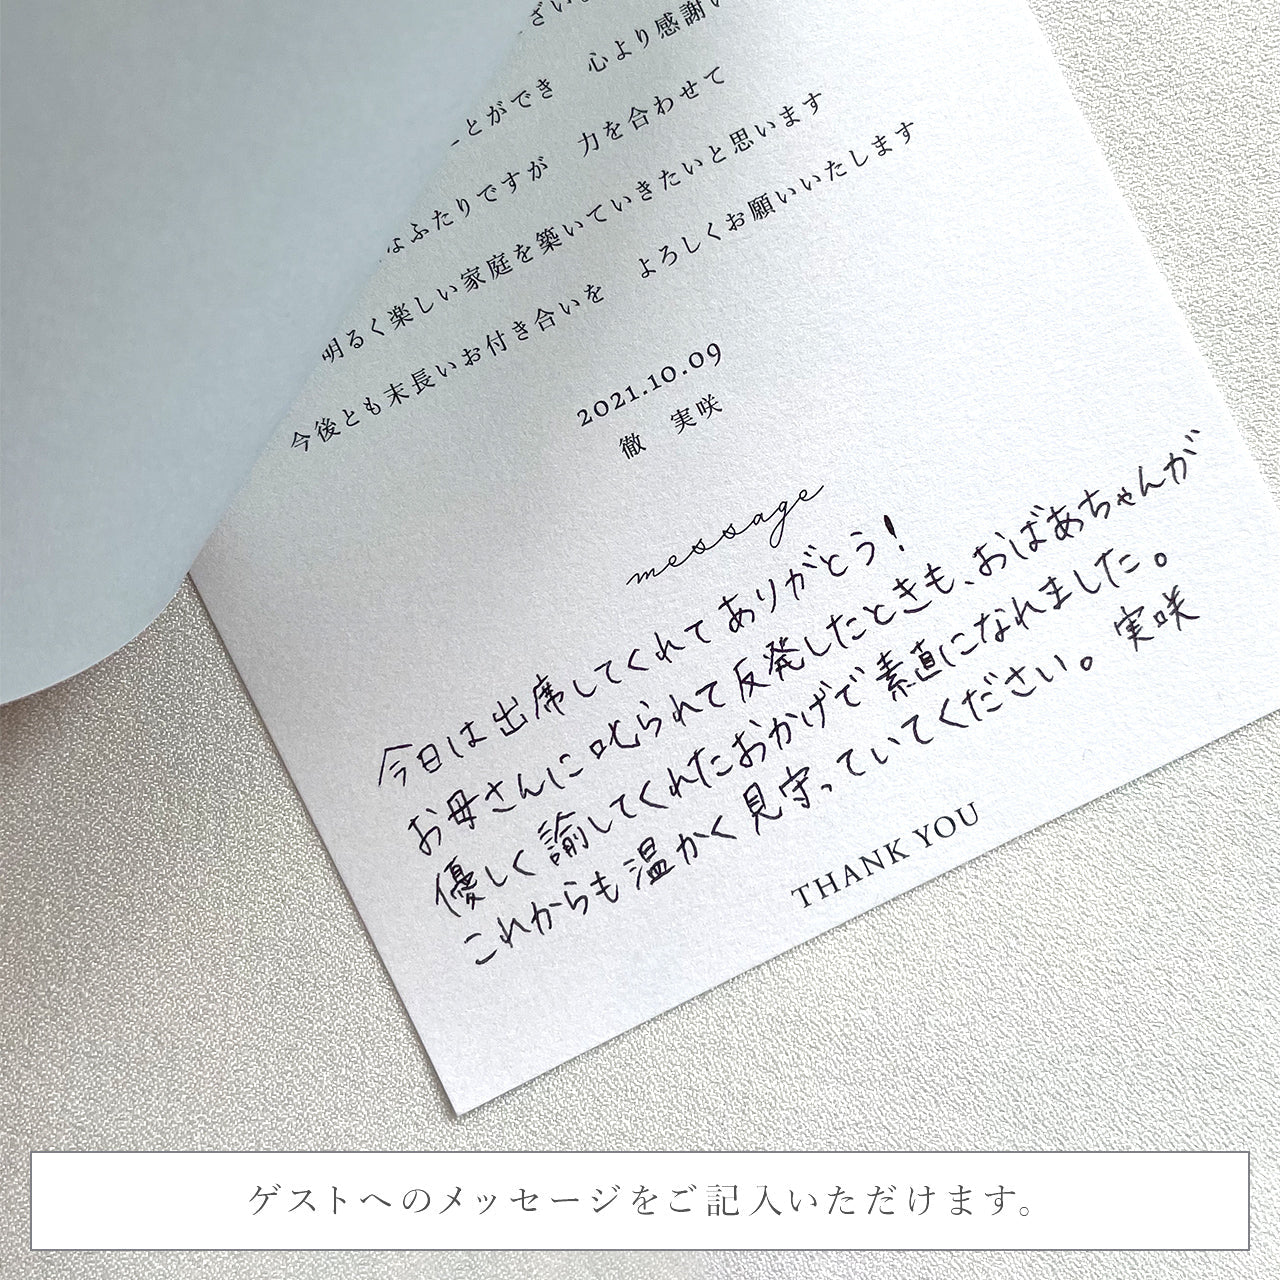 ざいま
とができ　心より感謝い
なふたりですが　力を合わせて
明るく楽しい家庭を築いていきたいと思います
今後とも末長いお付き合いを　よろしくお願いいたします
2021.10.09
徹　実咲
message
今日は出席してくれてありがとう!
お母さんに叱られて反発したときも、おばあちゃんが
優しく諭してくれたおかげで素直になれました。
これからも温かく見守っていてください。 実咲
THANK YOU
ゲストへのメッセージをご記入いただけます。